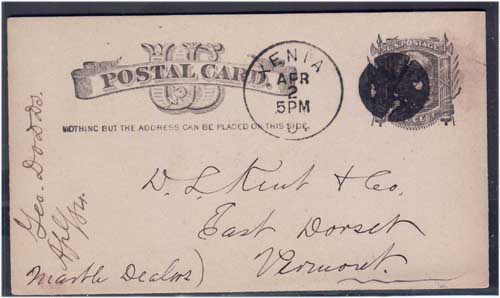 U.S. POSTAGE
US
POSTAL CARD.
XENIA
APR
2
5PM
O.
NOTHING BUT THE ADDRESS CAN BE PLACED ON THIS SIDE.
D. L. Kent & Co.
East Dorset
Vermont.
Marble Dealers)
Geo. Dodds.